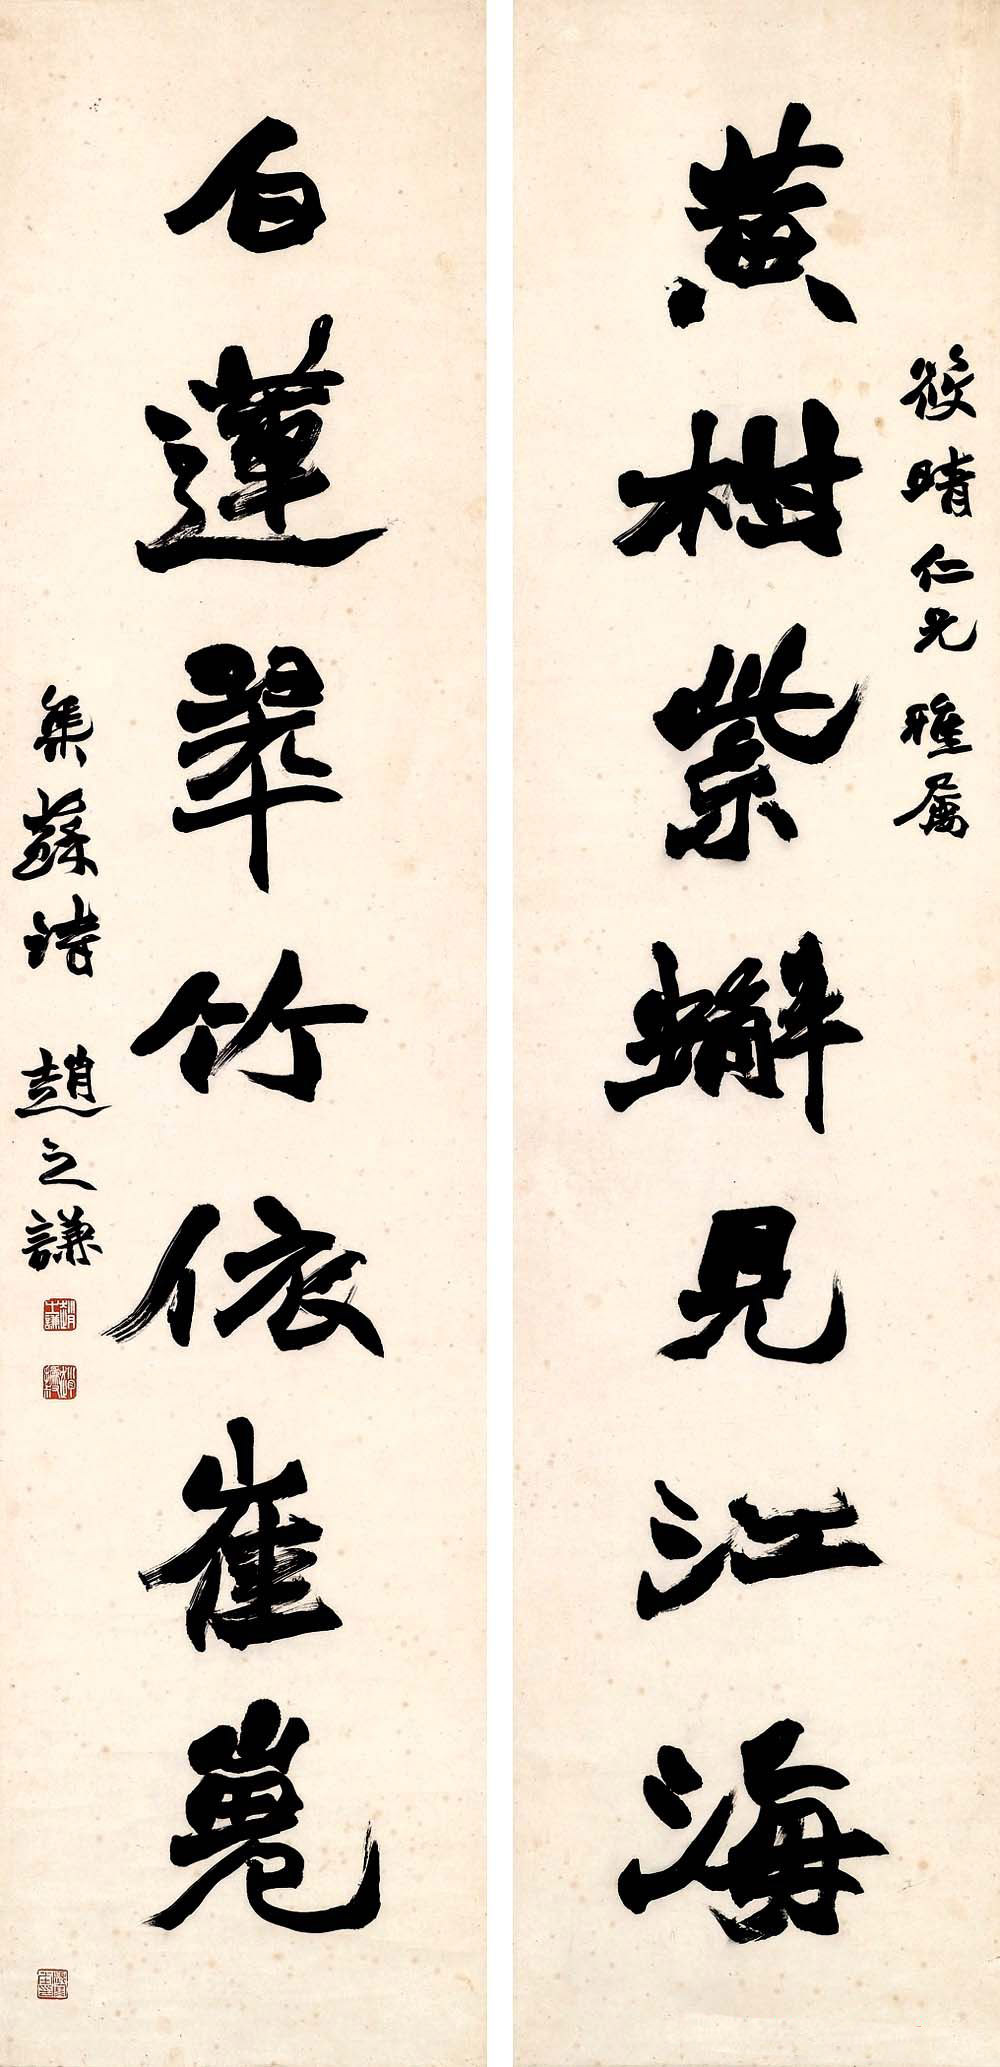 筱晴仁兄雅屬
黃柑紫蠏見江海
白蓮翠竹依崔嵬
集蘇詩 趙之謙